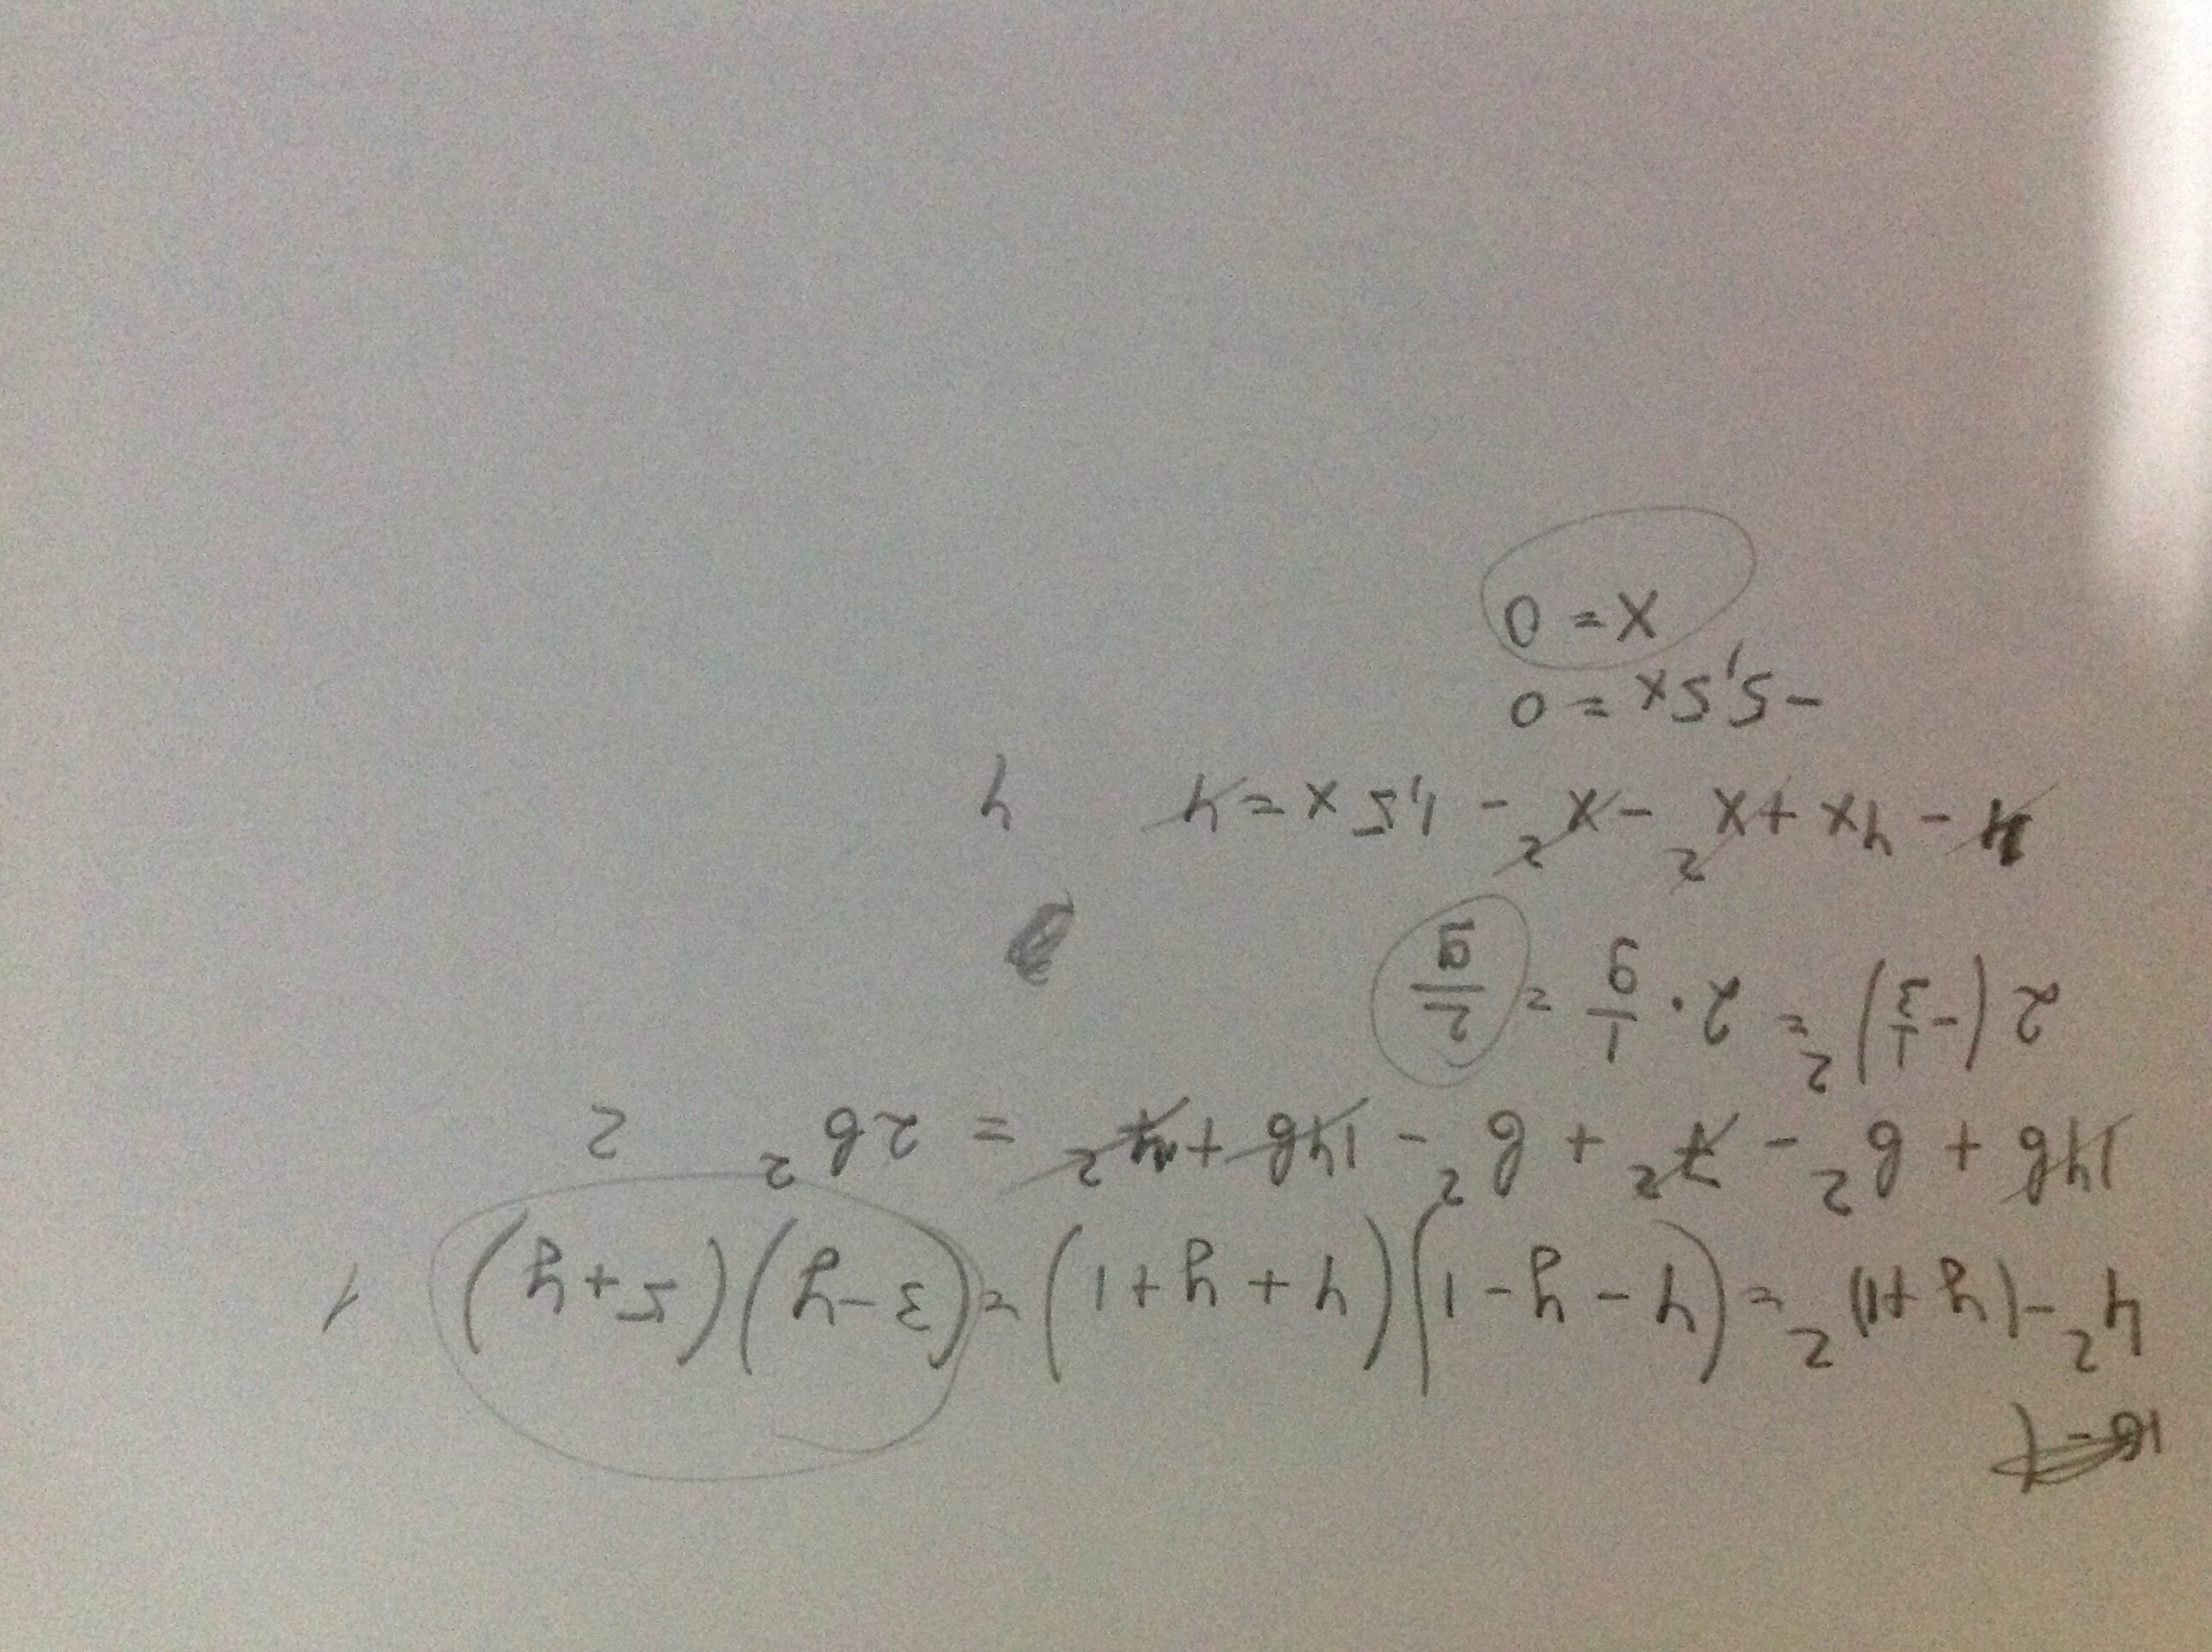 16 - (
4² - (y+1)² = (4 - y - 1)(4 + y + 1) = (3-y)(5+y) 1
14b + b² - 7² + b² - 14b + 7² = 2b² 2
2(-1/3)² = 2 · 1/9 = 2/9
4 - 4x + x² - x² - 1,5x = 4 4
-5,5x = 0
x = 0